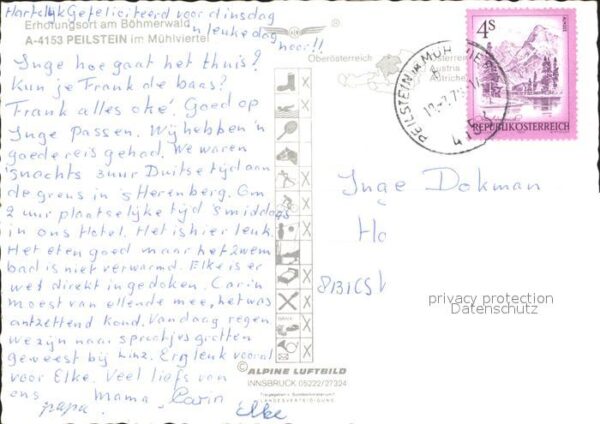 Hartelijk Gefeliciteerd voor dinsdag
'n leuke dag
hoor!!
Erholungsort am Böhmerwald
A-4153 PEILSTEIN im Mühlviertel
Inge hoe gaat het thuis?
Kun je Frank de baas?
Frank alles oké? Goed op
Inge passen. Wij hebben 'n
goede reis gehad. We waren
's nachts 3 uur Duitse tijd aan
de grens in 's Herenberg. Om
2 uur plaatselijke tijd 's middags
in ons Hotel. Het is hier leuk.
Het eten goed maar het zwem
bad is niet verwarmd. Elke is er
wel direkt in gedoken. Carin
moest van ellende mee, het was
ontzettend koud. Vandaag regen
we zijn naar sprookjesgrotten
geweest bij Linz. Erg leuk vooral
voor Elke. Veel liefs van
ons Mama, Carin
papa. Elke
Oberösterreich
Austria
Autriche
PEILSTEIN im MÜHLVIERTEL
4153
4S
REPUBLIK ÖSTERREICH
Inge Dokman
Ho
privacy protection
Datenschutz
ALPINE LUFTBILD
INNSBRUCK 05222/27324